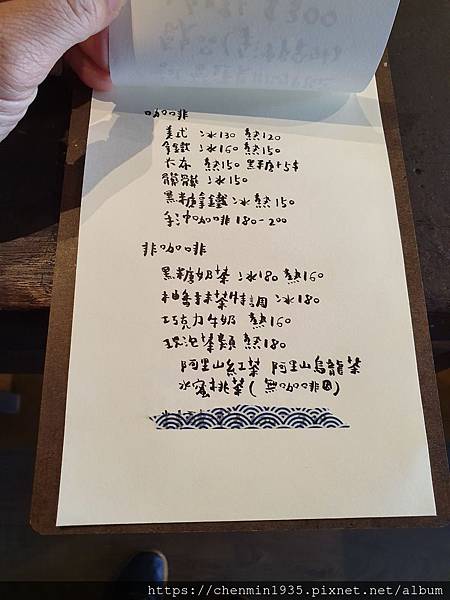 咖啡
美式 冰130 熱120
拿鐵 冰160 熱150
卡布 熱150 黑糖+5$
髒髒 冰150
黑糖拿鐵 冰 熱150
手沖咖啡 180-200
非咖啡
黑糖奶茶 冰180 熱160
柚香抹茶特調 冰180
巧克力牛奶 熱160
現泡茶類 熱180
阿里山紅茶 阿里山烏龍茶
水蜜桃茶(無咖啡因)
https://chenmin1935.pixnet.net/album